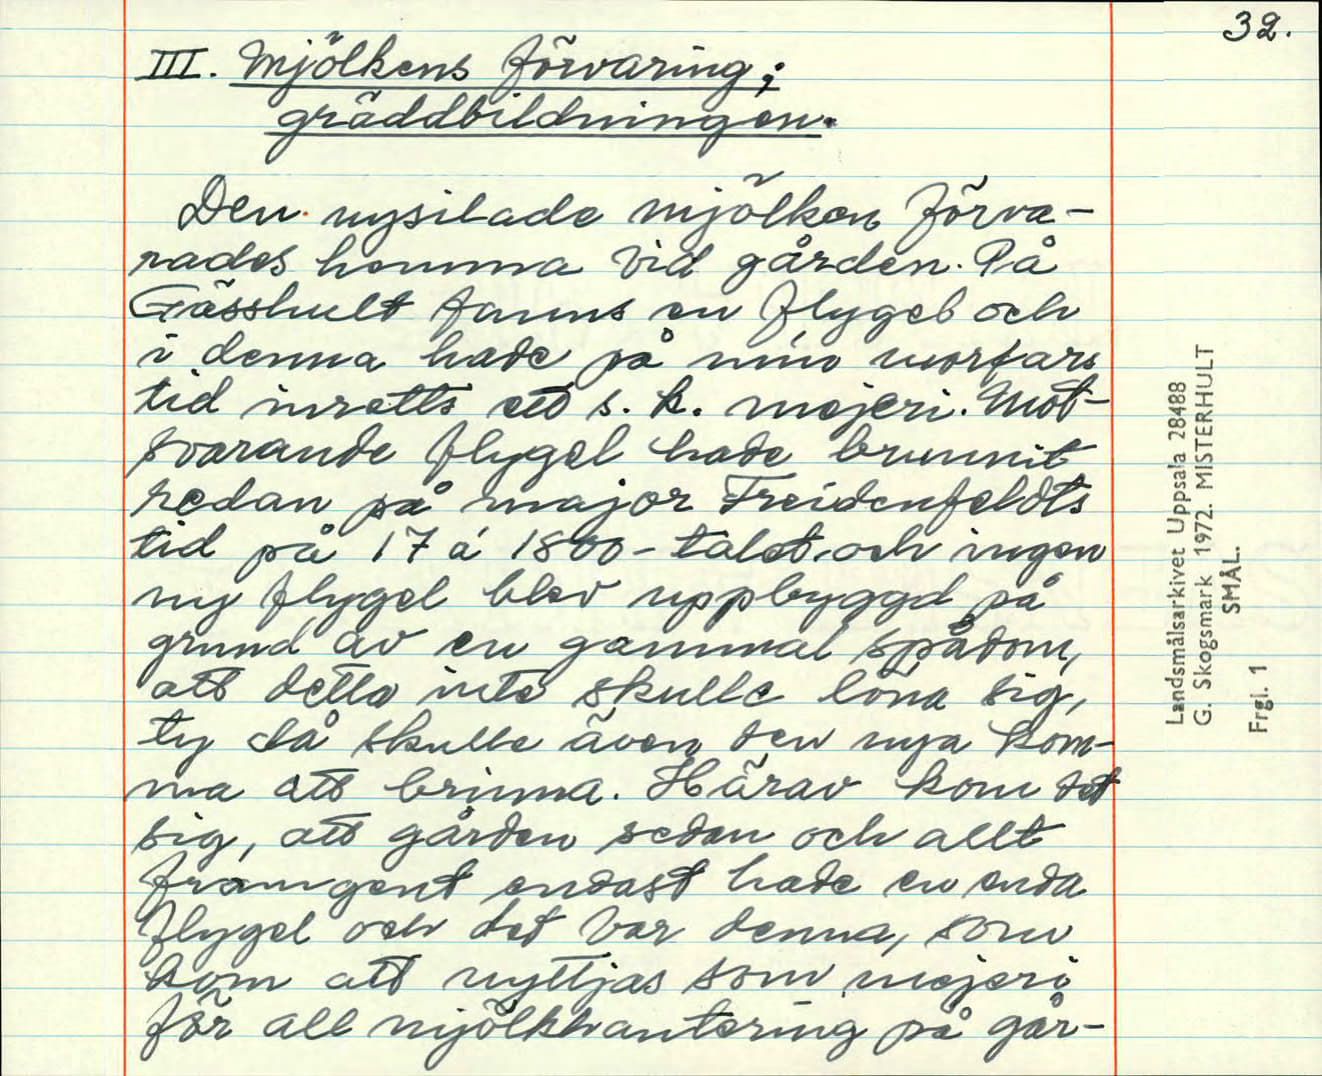 32.
III. Mjölkens förvaring;
gräddbildningen.
Den nysilade mjölken förva-
rades hemma vid gården. På
Gässhult fanns en flygel och
i denna hade på min morfars
tid inretts ett s. k. mejeri. Mot-
svarande flygel hade brunnit
redan på major Freidenfeldts
tid på 17 á 1800-talet, och ingen
ny flygel blev uppbyggd på
grund av en gammal spådom,
att detta inte skulle löna sig,
ty då skulle även den nya kom-
ma att brinna. Härav kom det
sig, att gården sedan och allt
framgent endast hade en enda
flygel och det var denna, som
kom att nyttjas som mejeri
för all mjölkhantering på går-
Landsmålsarkivet Uppsala 28488
G. Skogsmark 1972. MISTERHULT
SMÅL.
Frgl. 1